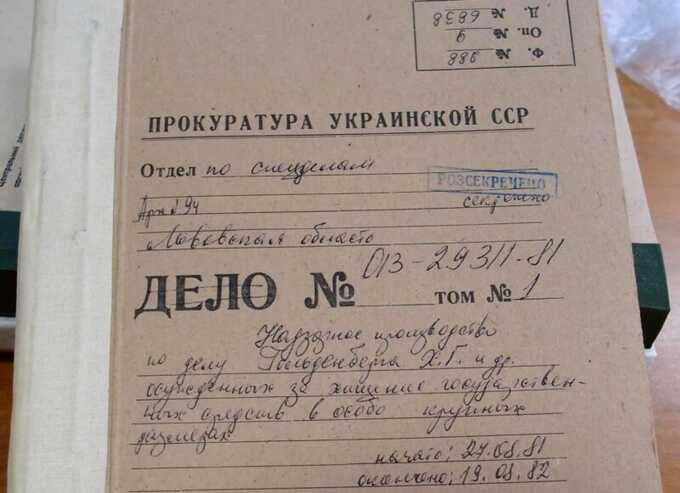 Ф. № 288
Оп. № 9
Д. № 6838
ПРОКУРАТУРА УКРАИНСКОЙ ССР
Отдел по спецделам
РОЗСЕКРЕЧЕНО
секретно
Львовская область
ДЕЛО № 013-29311-81 том № 1
Надзорное производство
по делу Гольденберга Х.Г. и др.
осужденных за хищение государствен-
ных средств в особо крупных
размерах
начато: 27.08.81
окончено: 19.08.82